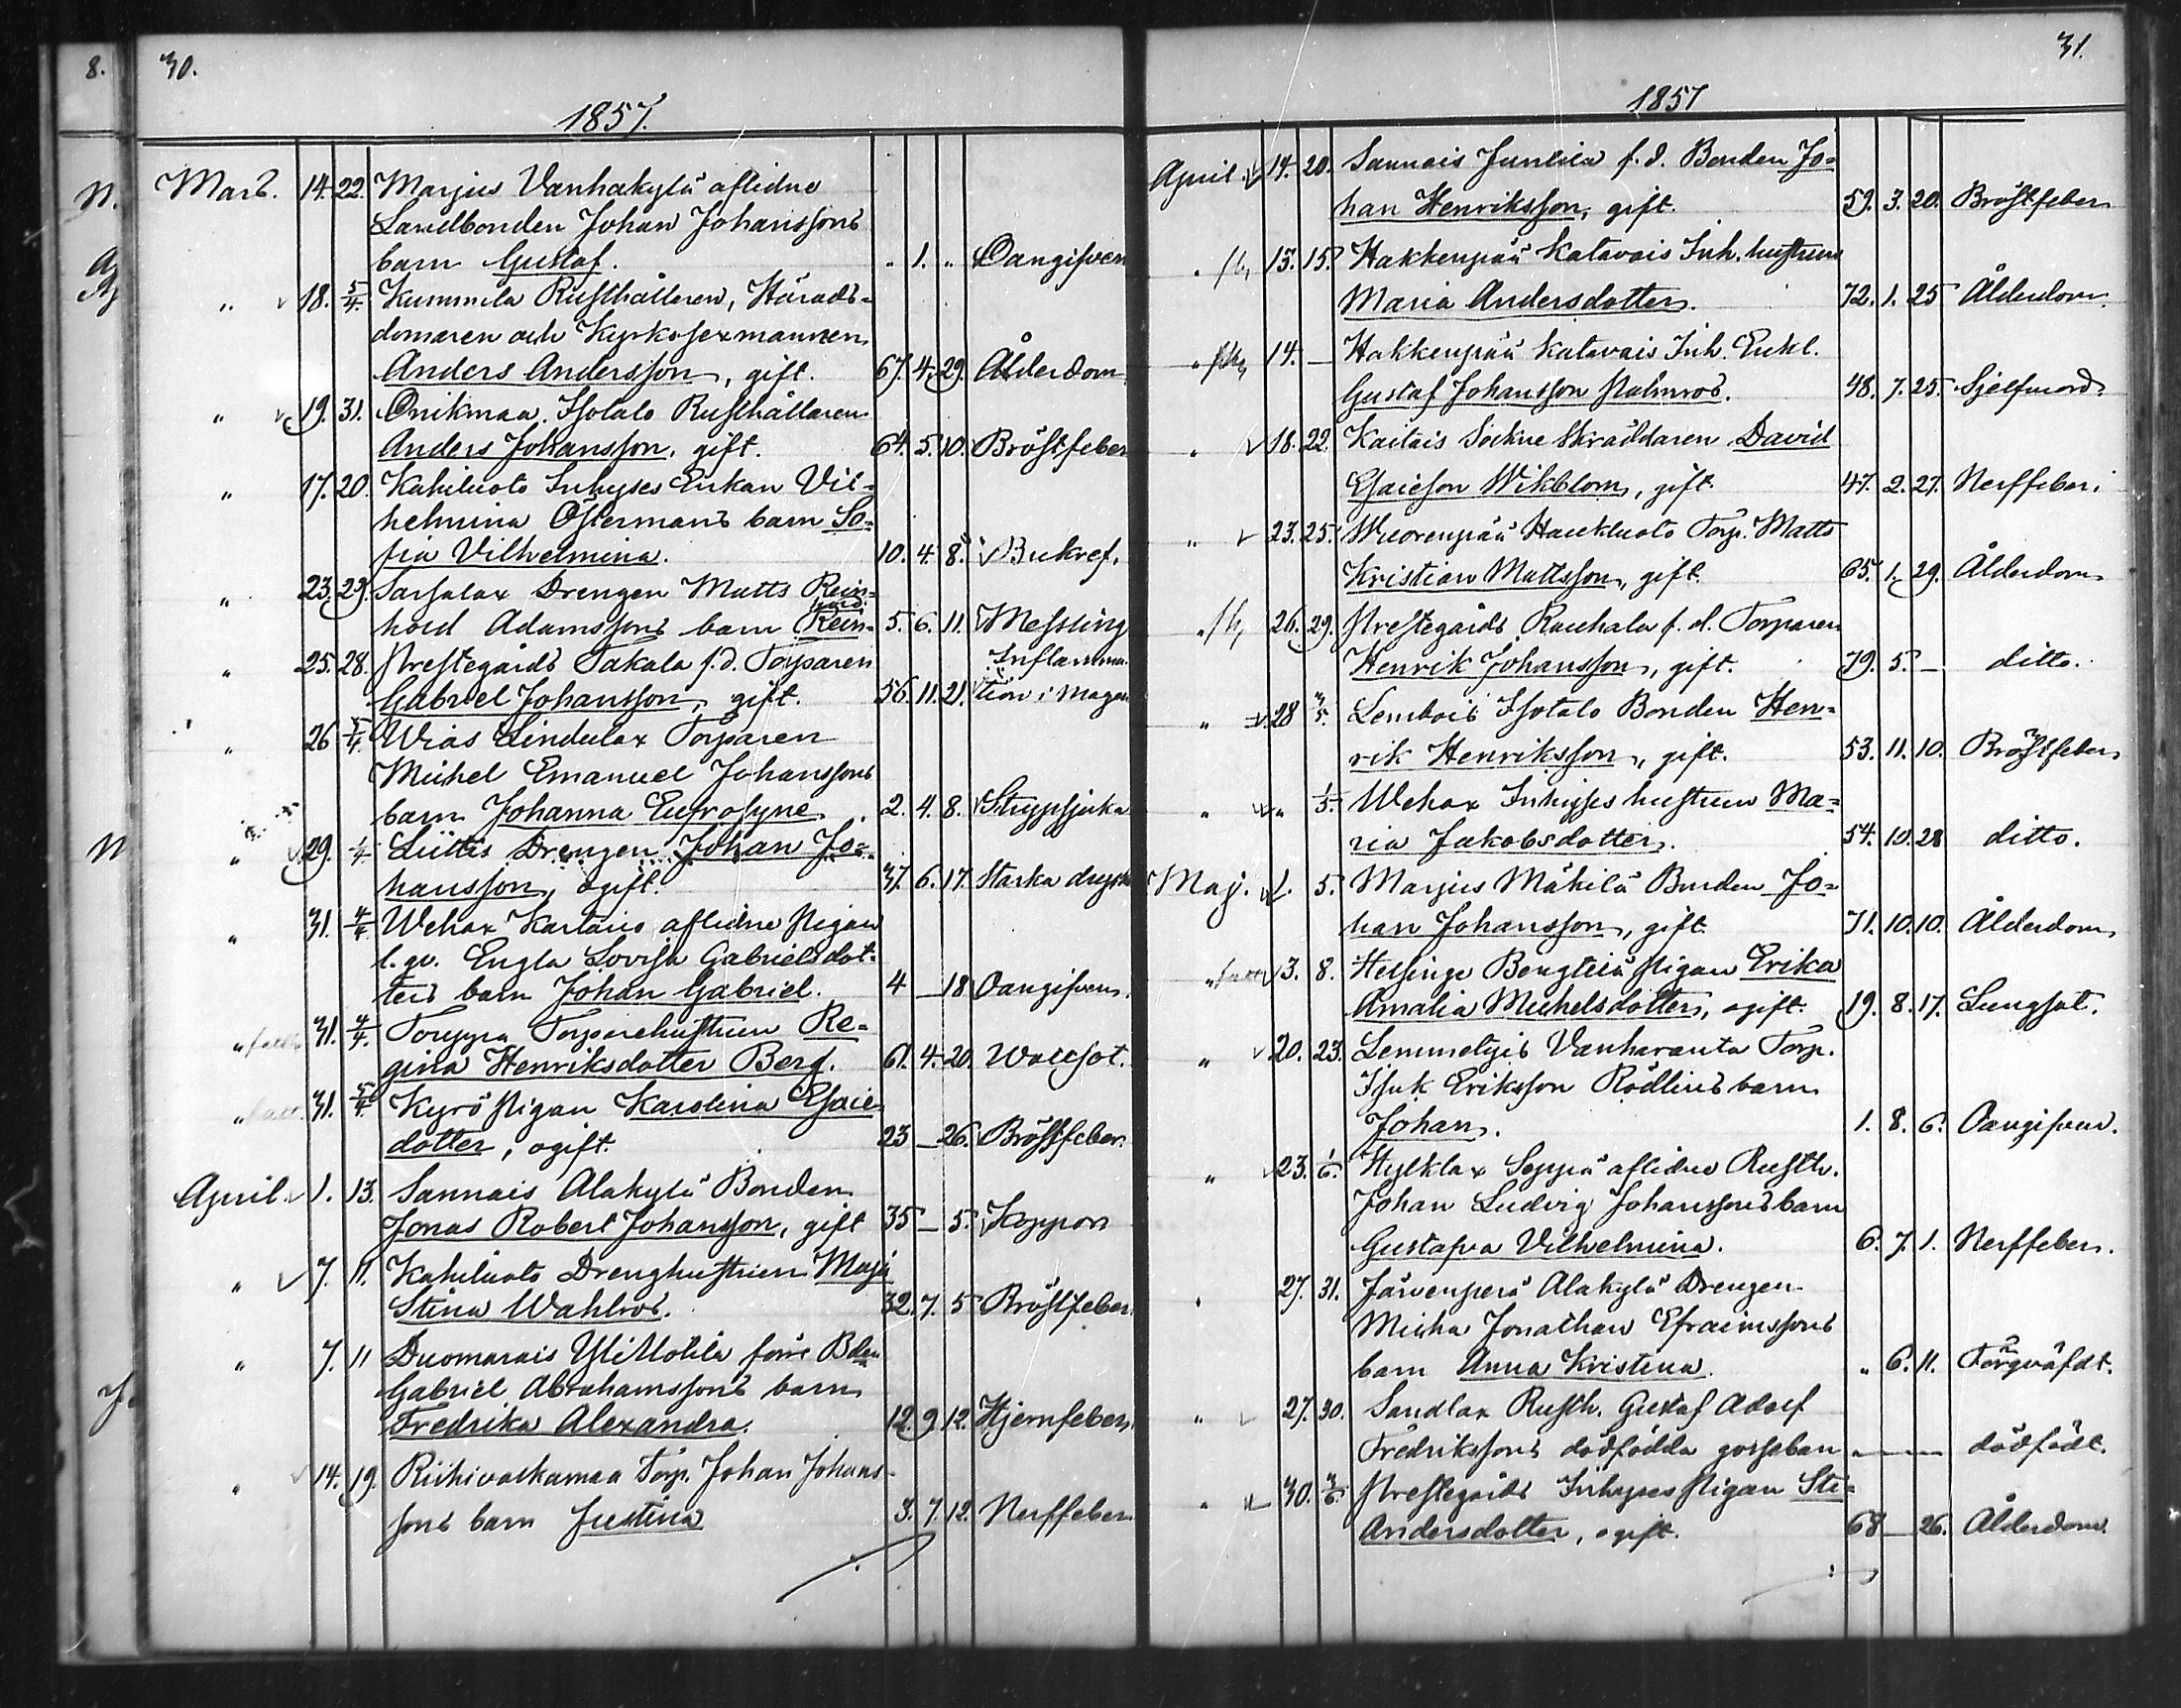 8.
30.
1857.
Mars. 14. 22. Marjus Vanhakylä aflidne
Landbonden Johan Johanssons
barn Gustaf. " 1. " Oangifven
" 18. 5/4. Kummila Rusthållaren, Härads-
domaren och Kyrkosexmannen
Anders Andersson, gift. 67. 4. 29. Ålderdom
" 19. 31. Onikmaa Isotalo Rusthållaren
Anders Johansson, gift. 64. 5. 10. Bröstfeber
" 17. 20. Kahiluoto Inhyses Enkan Vil-
helmina Östermans barn So-
fia Vilhelmina. 10. 4. 8. Bukref.
" 23. 29. Sarsalax Drengen Matts Rein-
hold Adamssons barn Rein- 5. 6. 11. Messling
hard.
" 25. 28. Prestegårds Takala f.d. Torparen Inflamma-
Gabriel Johansson, gift. 56. 11. 21. tion i Magen
" 26 5/4. Wias Lindulax Torparen
Michel Emanuel Johanssons
barn Johanna Eufrosyne. 2. 4. 8. Strypsjuka
" 29. 4. Drengen Johan Jo-
hansson, ogift. 37. 6. 17. Starka
" 31. 4/4. Wehax Kartano aflidne Pigan
l. qv. Engla Lovisa Gabrielsdot-
ters barn Johan Gabriel. 4 — 18 Oangifven.
" 31. 4/4. Torppa Torparehustrun Re-
gina Henriksdotter Berg. 61. 4. 20. Wattsot.
" 31. 5/4. Kyrö Pigan Karolina Esaie
dotter, ogift. 23 — 26. Bröstfeber.
April. 1. 13. Sannais Alakylä Bonden
Jonas Robert Johansson, gift 35 — 5. Koppor
" 7. 11. Kahiluoto Drenghustrun Maja
Stina Wahlros. 32. 7. 5 Bröstfeber.
" 7. 11 Duomarais Ylitlotila förre Bden
Gabriel Abrahamssons barn
Fredrika Alexandra. 12. 9. 12. Hjernfeber.
" 14. 19. Riihivalkamaa Torp. Johan Johans-
sons barn Justina 3. 7. 12. Nerffeber.
31.
1857
April. 14. 20. Sannais Juntila f.d. Bonden Jo-
han Henriksson, gift. 59. 3. 20. Bröstfeber
" 13. 15. Hakkenpää Katavais Inh. hustrun
Maria Andersdotter. 72. 1. 25 Ålderdom.
" 14. — Hakkenpää Katavais Inh. Enkl.
Gustaf Johansson Palmros. 48. 7. 25. Sjelfmord.
" 18. 22. Kaitais Sockne Skräddaren David
Esaieson Wikblom, gift. 47. 2. 27. Nerffeber.
" 23. 25. Wuorenpää Haukluoto Torp. Matts
Kristian Mattsson, gift. 65. 1. 29. Ålderdom
" 26. 29. Prestegårds Rauhala f.d. Torparen
Henrik Johansson, gift. 79. 5. — ditto.
" 28 3/5. Lembois Isotalo Bonden Hen-
rik Henriksson, gift. 53. 11. 10. Bröstfeber
" " 1/5. Wehax Inhyses hustrun Ma-
ria Jakobsdotter. 54. 10. 28 ditto.
Maj. 1. 5. Marjus Mäkilä Bonden Jo-
han Johansson, gift. 71. 10. 10. Ålderdom,
" 3. 8. Helsinge Bengtilä Pigan Erika
Amalia Michelsdotter, ogift. 19. 8. 17. Lungsot.
" 20. 23. Lemmetyis Vanharanta Torp.
Isak Eriksson Rödlins barn
Johan. 1. 8. 6. Oangifven.
" 23. 1/6. Hylklax Seppä aflidne Rusth.
Johan Ludvig Johanssons barn
Gustafva Vilhelmina. 6. 7. 1. Nerffeber.
" 27. 31. Järvenperä Alakylä Drengen
Micha Jonathan Efraimssons
barn Anna Kristina. " 6. 11. Torgväfdt.
" 27. 30. Sandlax Rusth. Gustaf Adolf
Fredrikssons dödfödda gossebarn — — — dödfödt.
" 30. 3/6. Prestegårds Inhyses Pigan Sti-
Andersdotter, ogift. 68 — 26. Ålderdom.